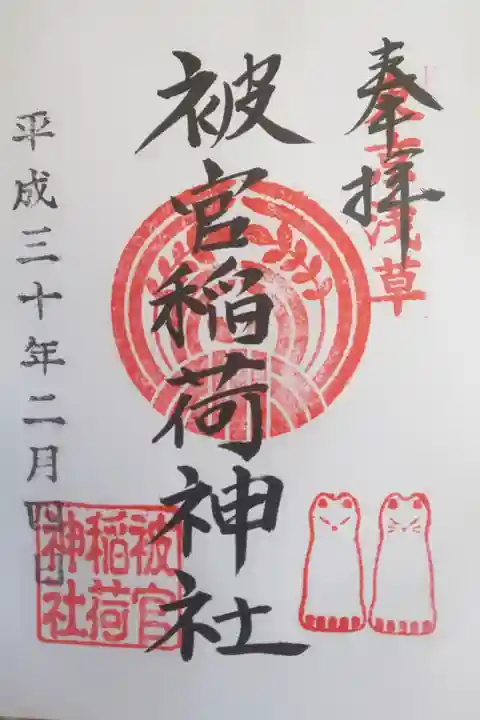 奉拝
東京浅草
被官稲荷神社
平成三十年二月四日
被官
稲荷
神社